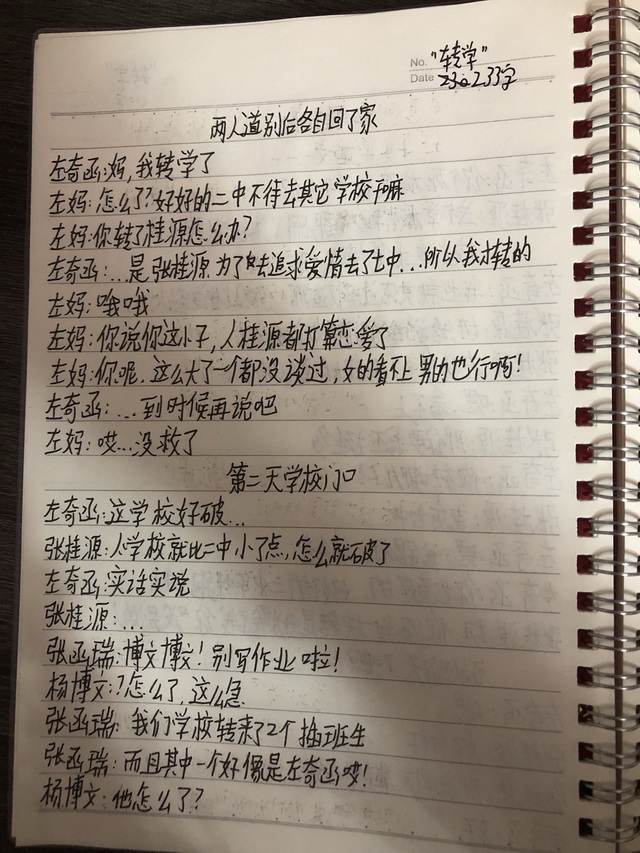 No. "转学"
Date 230233字
两人道别后各自回了家
左奇函:妈,我转学了
左妈:怎么了?好好的二中不待去其它学校干嘛
左妈:你转了桂源怎么办?
左奇函:...是张桂源为了去追求爱情去了七中...所以我才转的
左妈:哦哦
左妈:你说你这小子,人桂源都打算恋爱了
左妈:你呢,这么大了一个都没谈过,女的看不上男的也行啊!
左奇函:...到时候再说吧
左妈:哎...没救了
第二天学校门口
左奇函:这学校好破...
张桂源:人学校就比二中小了点,怎么就破了
左奇函:实话实说
张桂源:...
张函瑞:博文博文!别写作业啦!
杨博文:?怎么了,这么急
张函瑞:我们学校转来了2个插班生
张函瑞:而且其中一个好像是左奇函哎!
杨博文:他怎么了?